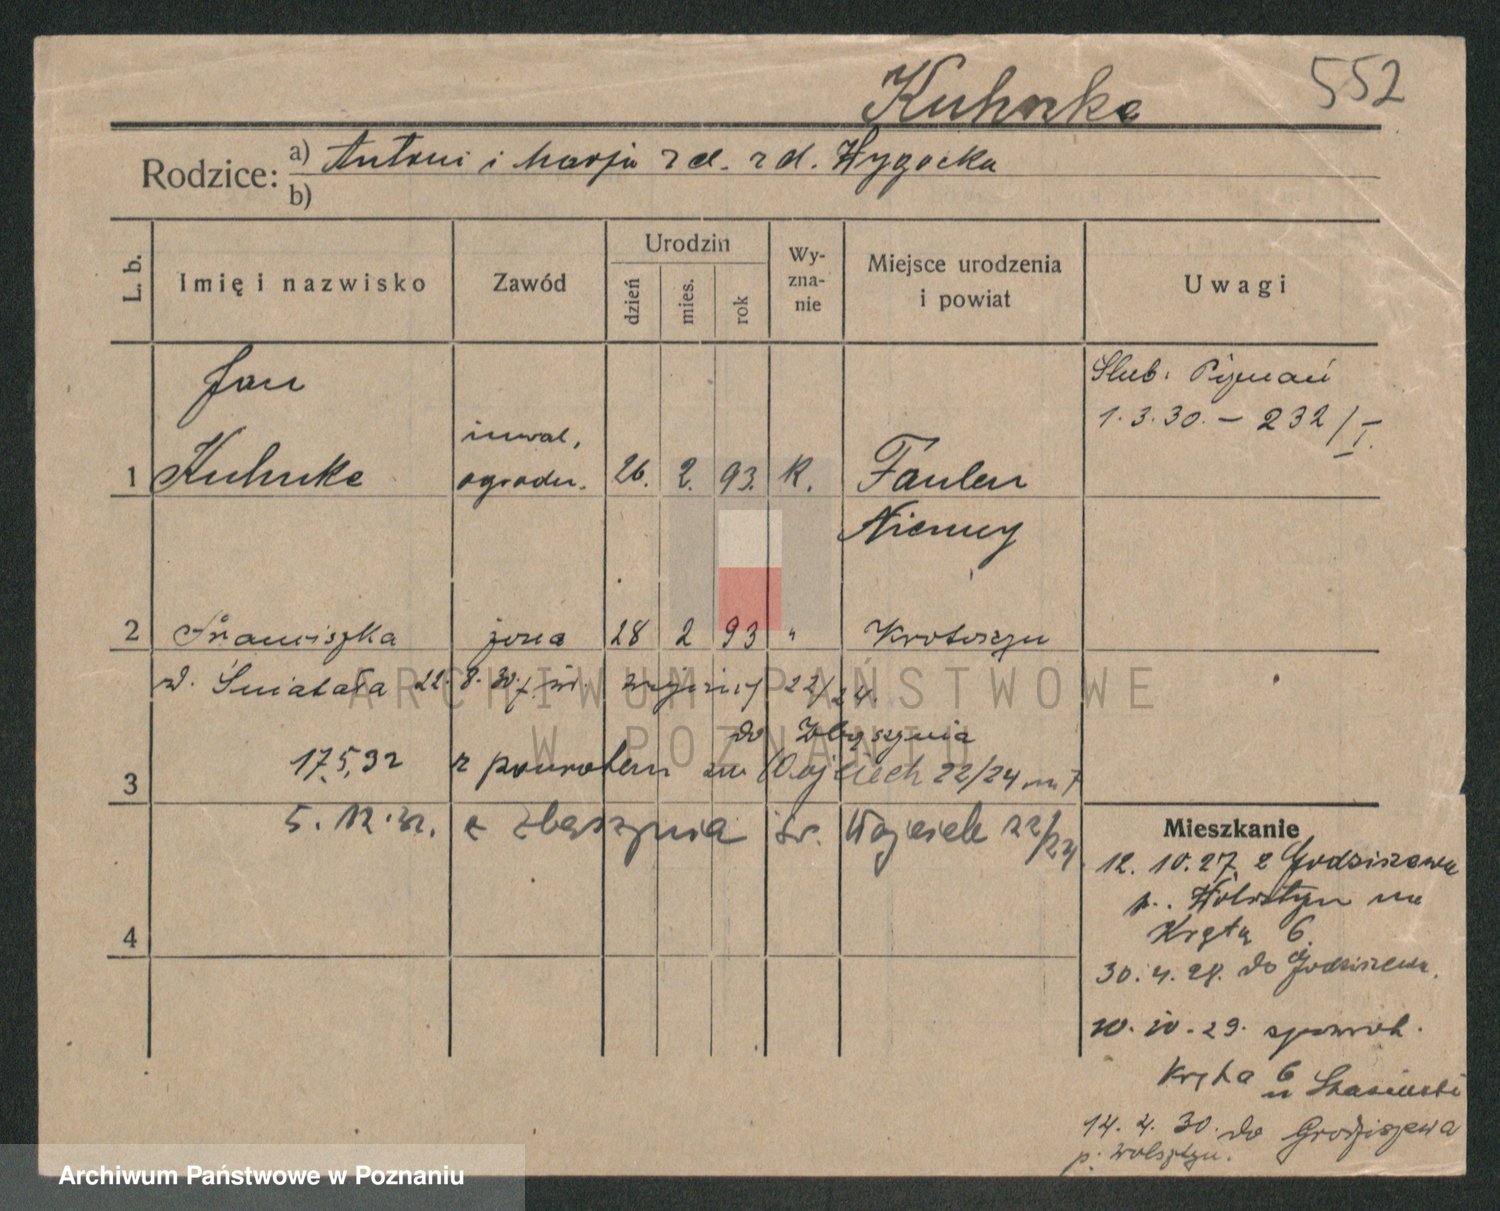 552
Kuhnke
Rodzice: a) Antoni i Marja z d. z d. Wygocka
b)
L. b.
Imię i nazwisko
Zawód
Urodzin
dzień
mies.
rok
Wy-
zna-
nie
Miejsce urodzenia
i powiat
Uwagi
Jan
Slub. Poznań
1.3.30. – 232/I.
inwal,
1 Kuhnke ogrodn. 26. 2. 93. R. Faulen
Niemcy
2 Franciszka żona 28 2 93 " Krotoszyn
d. Śniatała 22. 8. 30. św. 22/24.
do Zbąszynia
3 17.5.32 z powrotem Wojciech 22/24 m 7
5. 12. 32. z Zbąszynia św. Wojciech 22/24
4
Mieszkanie
12. 10. 27. z Godziszewa
p. Wolsztyn na
Kręta 6
30. 4. 28. do Godziszewa.
10. 10. 29. spowrot.
Kręta 6
14. 4. 30. do Grodziszewa
p. Wolsztyn.
ARCHIWUM PAŃSTWOWE
W POZNANIU
Archiwum Państwowe w Poznaniu